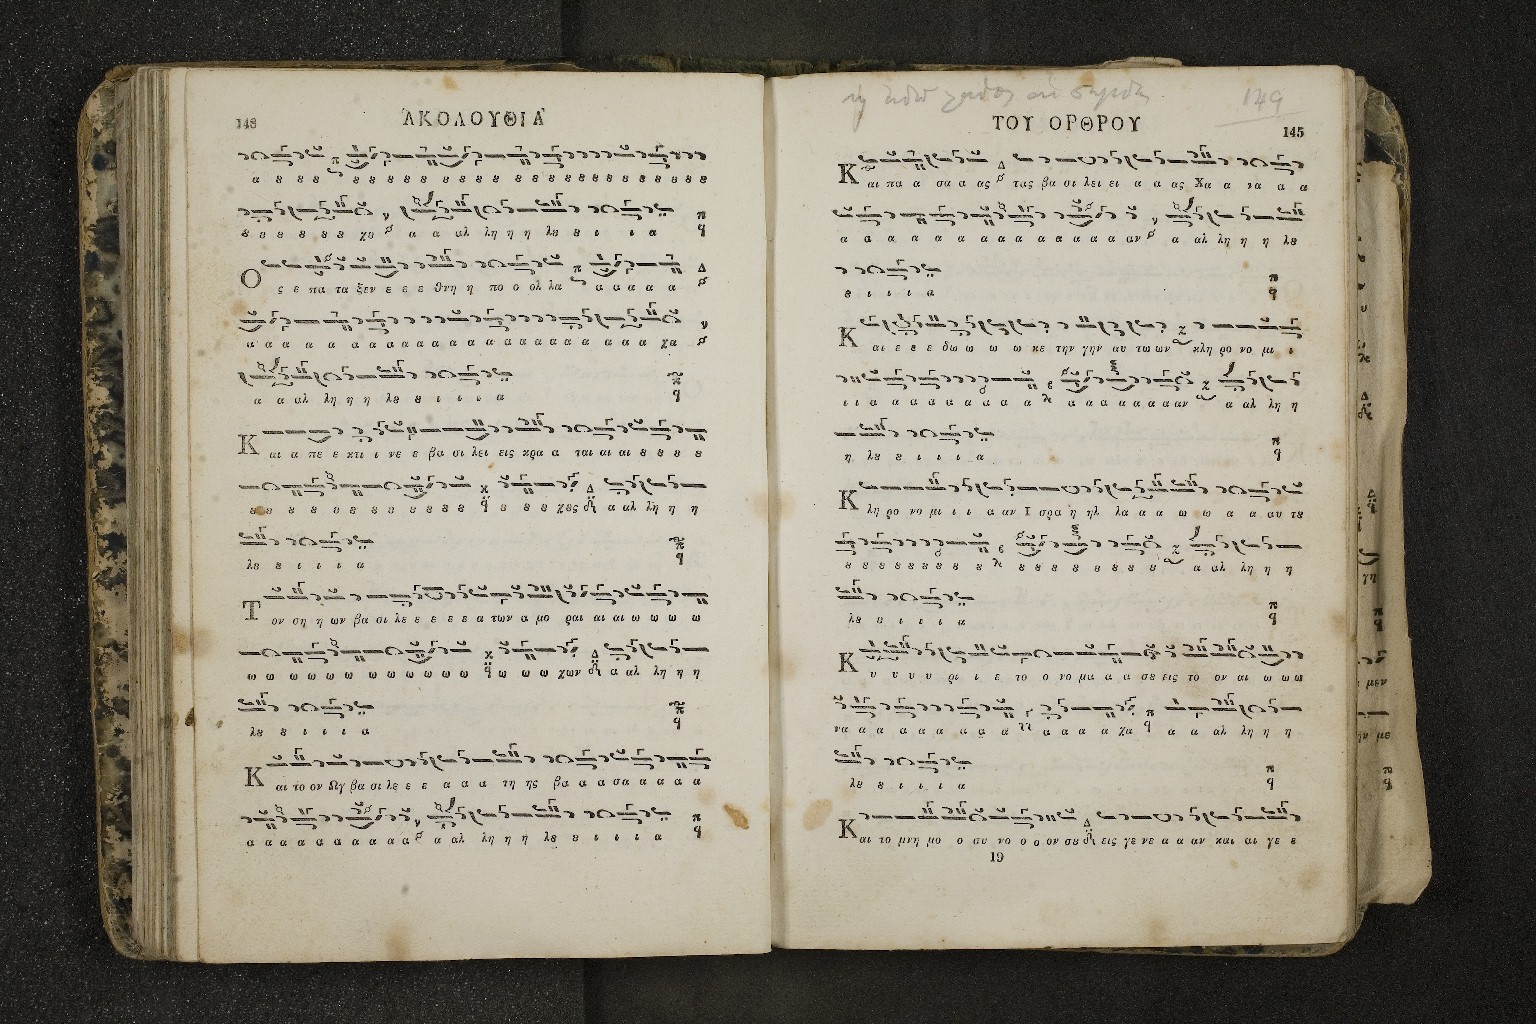 148
ἈΚΟΛΟΥΘΙᾺ
α ȣ ȣ ȣ ȣ ȣ ȣ ȣ ȣ ȣ ȣ ȣ ȣ ȣ ȣ ȣ ȣ ȣ ȣ ȣ ȣ ȣ ȣ ȣ
ȣ ȣ ȣ ȣ ȣ χȣ α α αλ λη η η λȣ ȣ ι ι α
Ο ς ε πα τα ξεν ε ε ε θνη η πο ο ολ λα α α α α α
α α α α α α α α α α α α α α α α α α α α α α χα
α α αλ λη η η λȣ ȣ ι ι ι α
Κ αι α πε ε κτι ι νε ε βα σι λει εις κρα α ται αι αι ȣ ȣ ȣ ȣ
ȣ ȣ ȣ ȣ ȣ ȣ ȣ ȣ ȣ ȣ ȣ ȣ ȣ ȣ χȣς α αλ λη η η
λȣ ȣ ι ι ι α
Τ ον ση η ων βα σι λε ε ε ε ε α των α μο ραι αι αι ω ω ω ω
ω ω ω ω ω ω ω ω ω ω ω ω ω ω χων α αλ λη η η
λȣ ȣ ι ι ι α
Κ αι το ον Ωγ βα σι λε ε ε α α α τη ης βα α α σα α α α α
α α α α α α α α α α α αλ λη η η λȣ ȣ ι ι ι α
149
ΤΟΥ ΟΡΘΡΟΥ
145
Κ αι πα α σα α ας τας βα σι λει ει α α ας Χα α να α α
α α α α α α α α α α α α α αν α αλ λη η η λȣ
ȣ ι ι ι α
Κ αι ε ε ε δω ω ω ω κε την γην αυ τω ων κλη ρο νο μι ι
ι ι α α α α α α α α α α α α α α αν α αλ λη η
η λȣ ȣ ι ι ι α
Κ λη ρο νο μι ι ι α αν Ι σρα η ηλ λα α α ω ω α α αυ τȣ
ȣ ȣ ȣ ȣ ȣ ȣ ȣ ȣ ȣ ȣ ȣ ȣ ȣ ȣ ȣ α αλ λη η η
λȣ ȣ ι ι ι α
Κ υ υ υ υ ρι ι ε το ο νο μα α α σȣ εις το ον αι ω ω ω
να α α α α α α α α α α α α χα α α αλ λη η η
λȣ ȣ ι ι ι α
Κ αι το μνη μο ο συ νο ο ο ον σȣ εις γε νε α α αν και αι γε ε
19